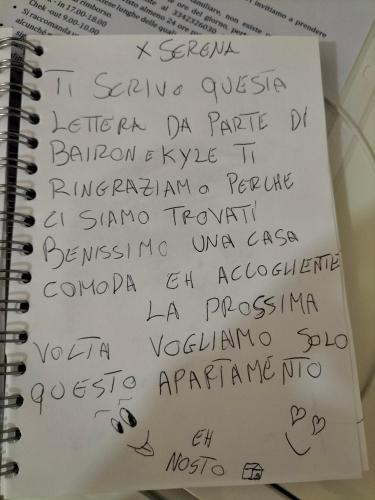 invitiamo a prendere
familiare, non esiste
rimborso.
Chek -out 9.00-10.00
Si raccomanda
X SERENA
TI SCRIVO QUESTA
LETTERA DA PARTE DI
BAIRON e KYLE TI
RINGRAZIAMO PERCHE
CI SIAMO TROVATI
BENISSIMO UNA CASA
COMODA EH ACCOGLIENTE
LA PROSSIMA
VOLTA VOGLIAMO SOLO
QUESTO APARTAMENTO
EH
NOSTO